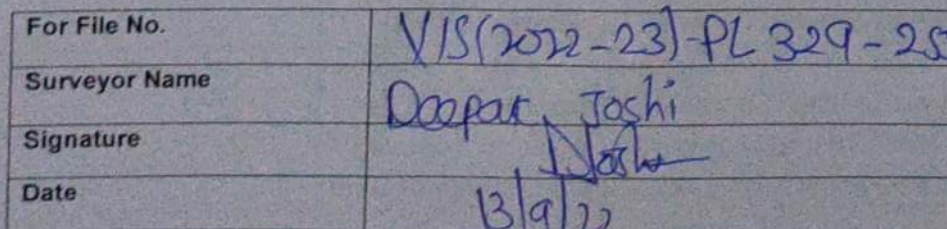 For File No. VIS(2022-23)-PL329-25
Surveyor Name Deepak Joshi
Signature DJosh
Date 13/9/22